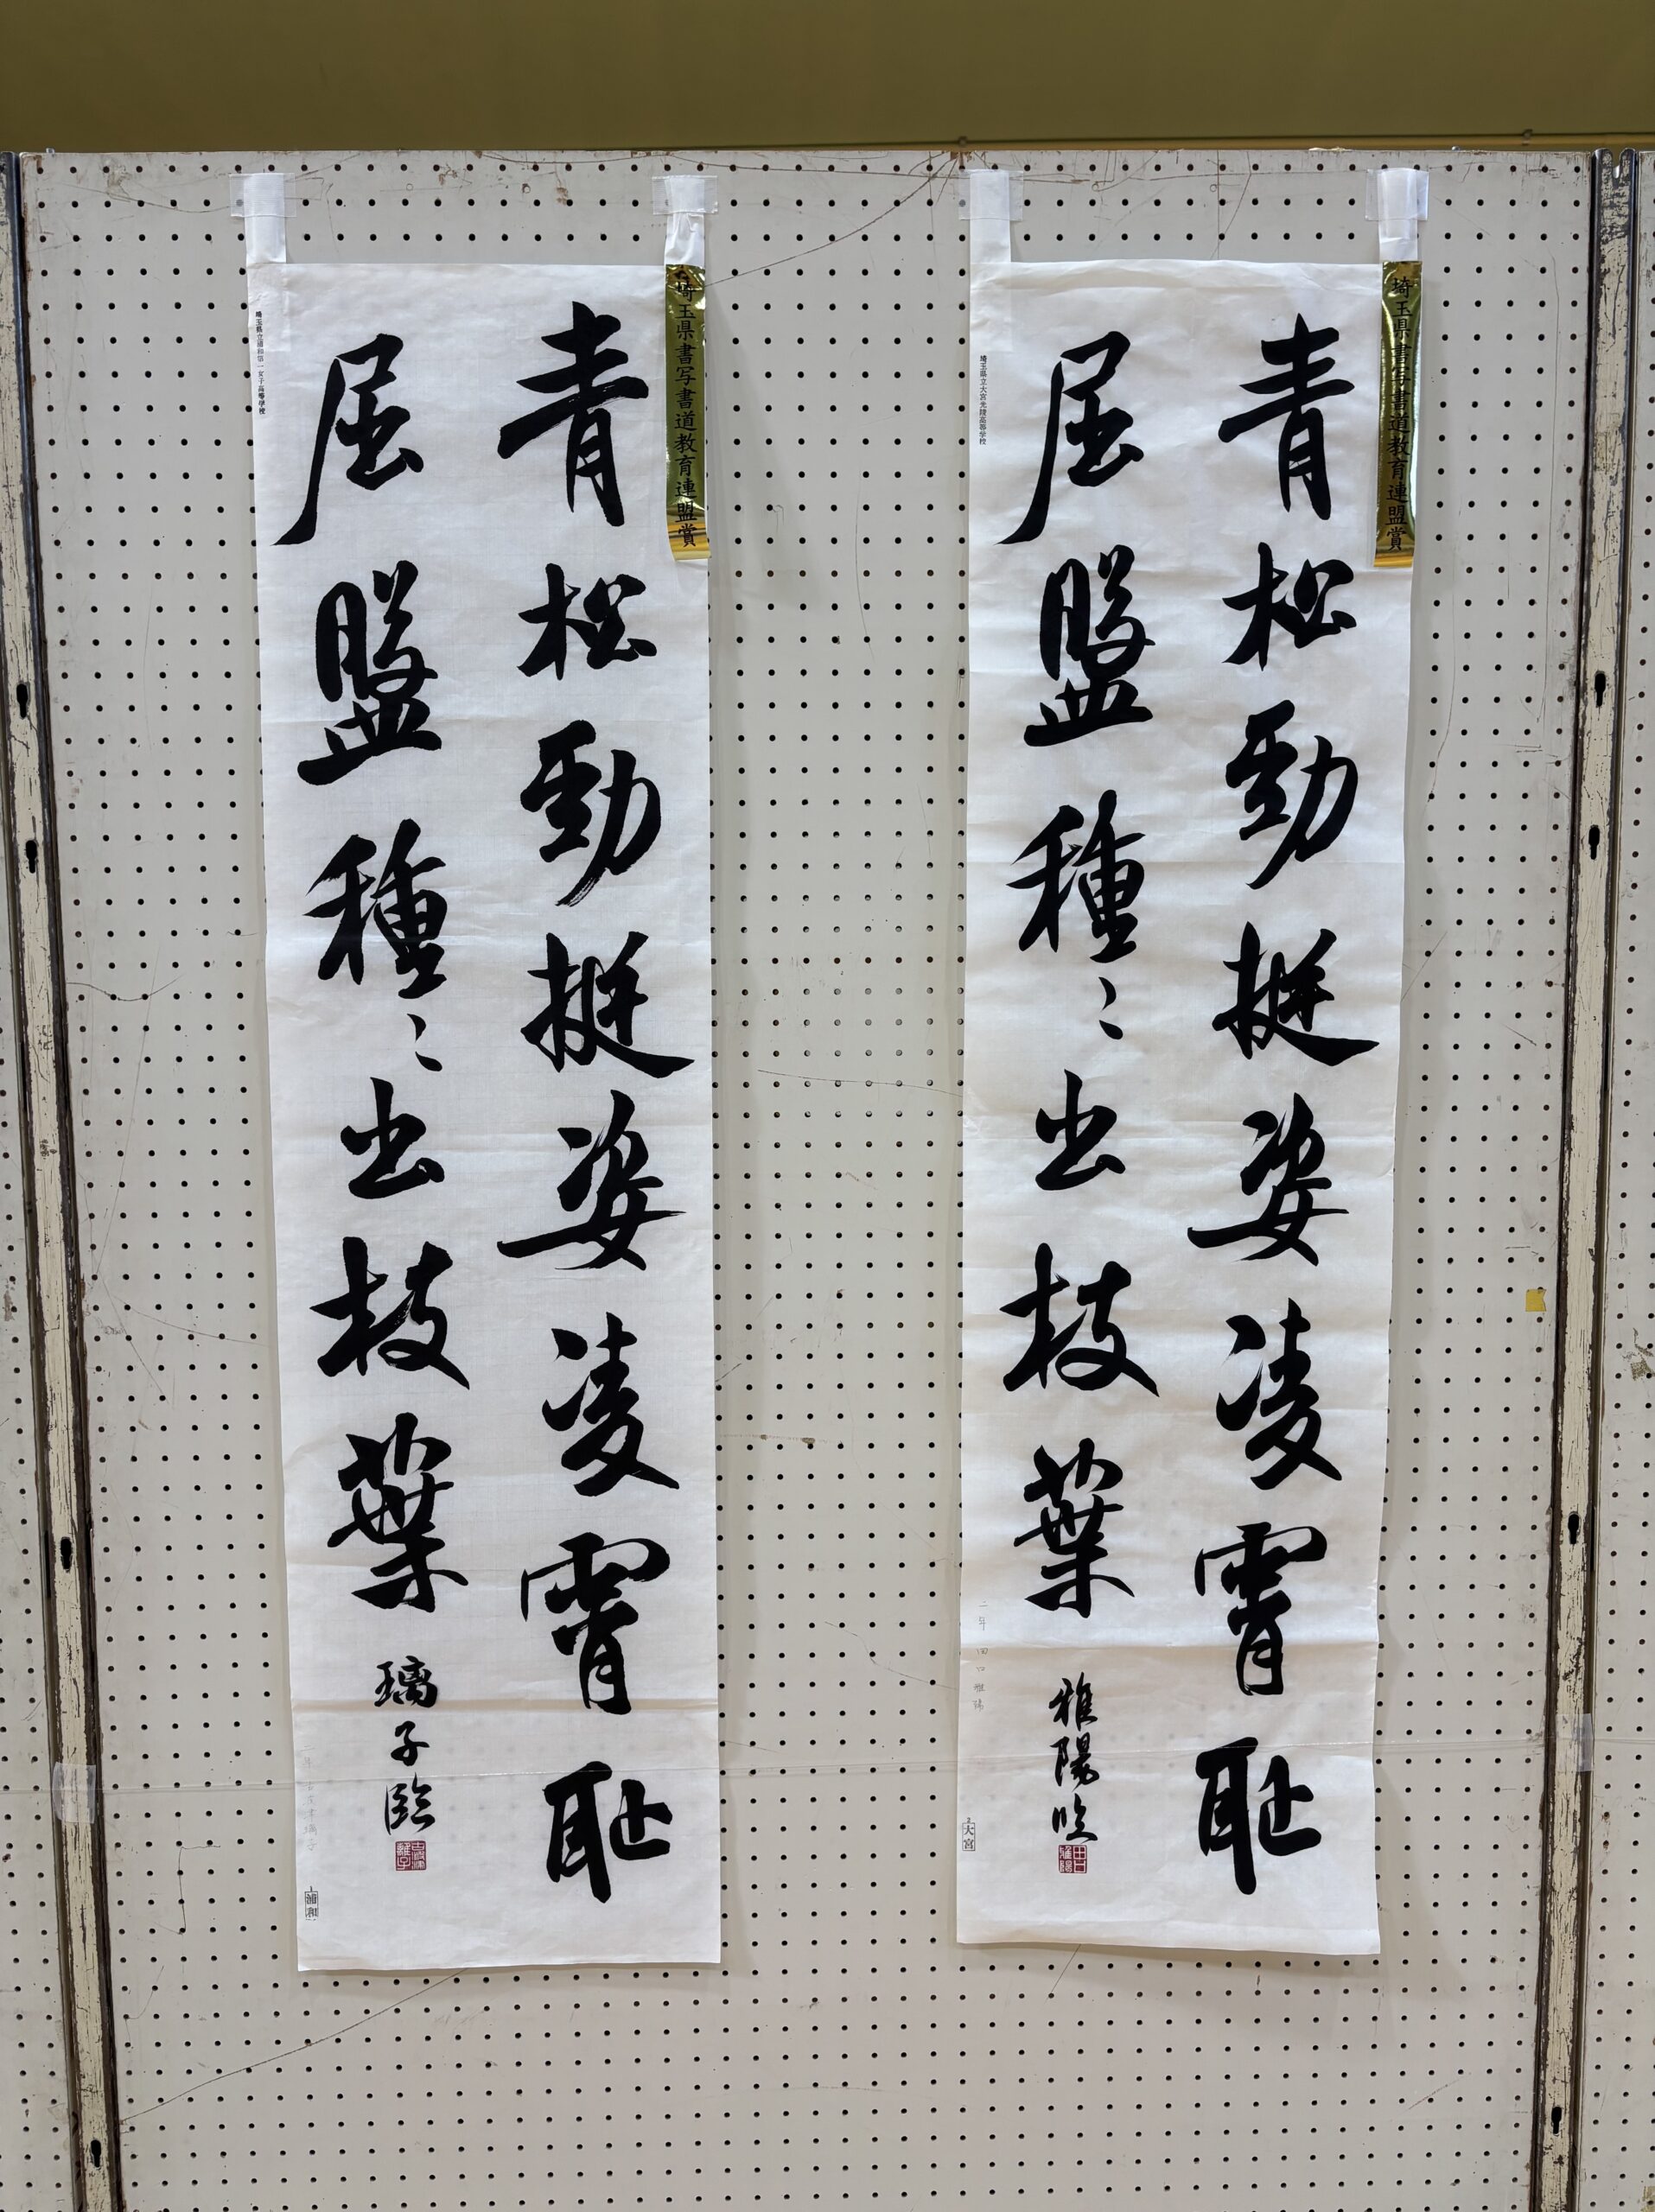 埼玉県書写書道教育連盟賞
青松勁挺姿凌霄耻
屈盤種〻出枝葉
璃子臨
埼玉県立浦和第一女子高等学校
浦和
埼玉県書写書道教育連盟賞
青松勁挺姿凌霄耻
屈盤種〻出枝葉
雅陽臨
埼玉県立大宮光陵高等学校
二年 田口雅陽
大宮